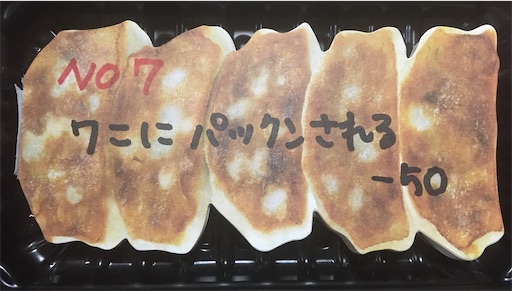 NO 7
ワニにパックンされる
-50